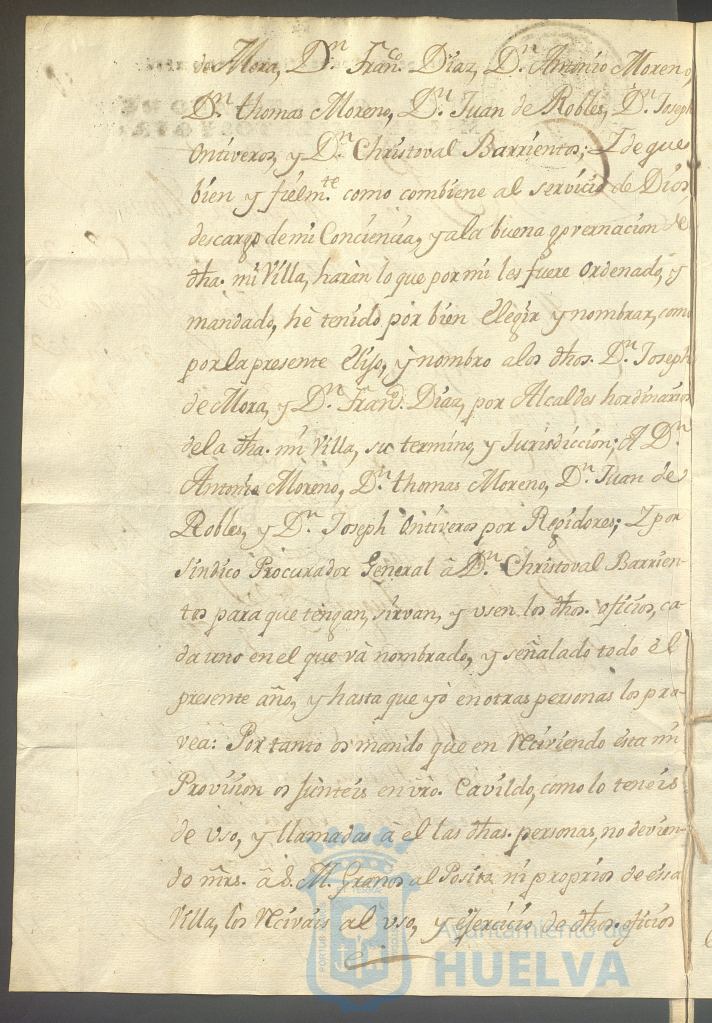 de Mora, D.n Fran.co Diaz, D.n Antonio Moreno,
D.n thomas Moreno, D.n Juan de Robles, D.n Joseph
Ontiveros, y D.n Christoval Barrientos; Y de que
bien y fielm.te como combiene al servicio de Dios,
descargo de mi Conciencia, y a la buena governacion de
dha. mi Villa, haràn lo que por mi les fuere ordenado, y
mandado, hè tenido por bien Elegir y nombrar, como
por la presente Elijo, y nombro a los dhos. D.n Joseph
de Mora, y D.n Fran.co Diaz, por Alcaldes hordinarios
de la dha. mi Villa, su termino, y Jurisdiccion; A D.n
Antonio Moreno, D.n thomas Moreno, D.n Juan de
Robles, y D.n Joseph Ontiveros por Regidores; Y por
Sindico Procurador General â D.n Christoval Barrien-
tos para que tengan, sirvan, y usen los dhos. oficios, ca-
da uno en el que và nombrado, y señalado todo el
presente año, y hasta que yo en otras personas los pro-
vea: Por tanto os mando que en Reciviendo esta mi
Provision os junteis en vro. Cavildo, como lo teneis
de uso, y llamadas à el las dhas. personas, no devien-
do mrs. â S. M. Granos al Posito, ni proprios de essa
Villa, los Recivais al uso, y exercicio de dhos. oficios
Ayuntamiento de
HUELVA